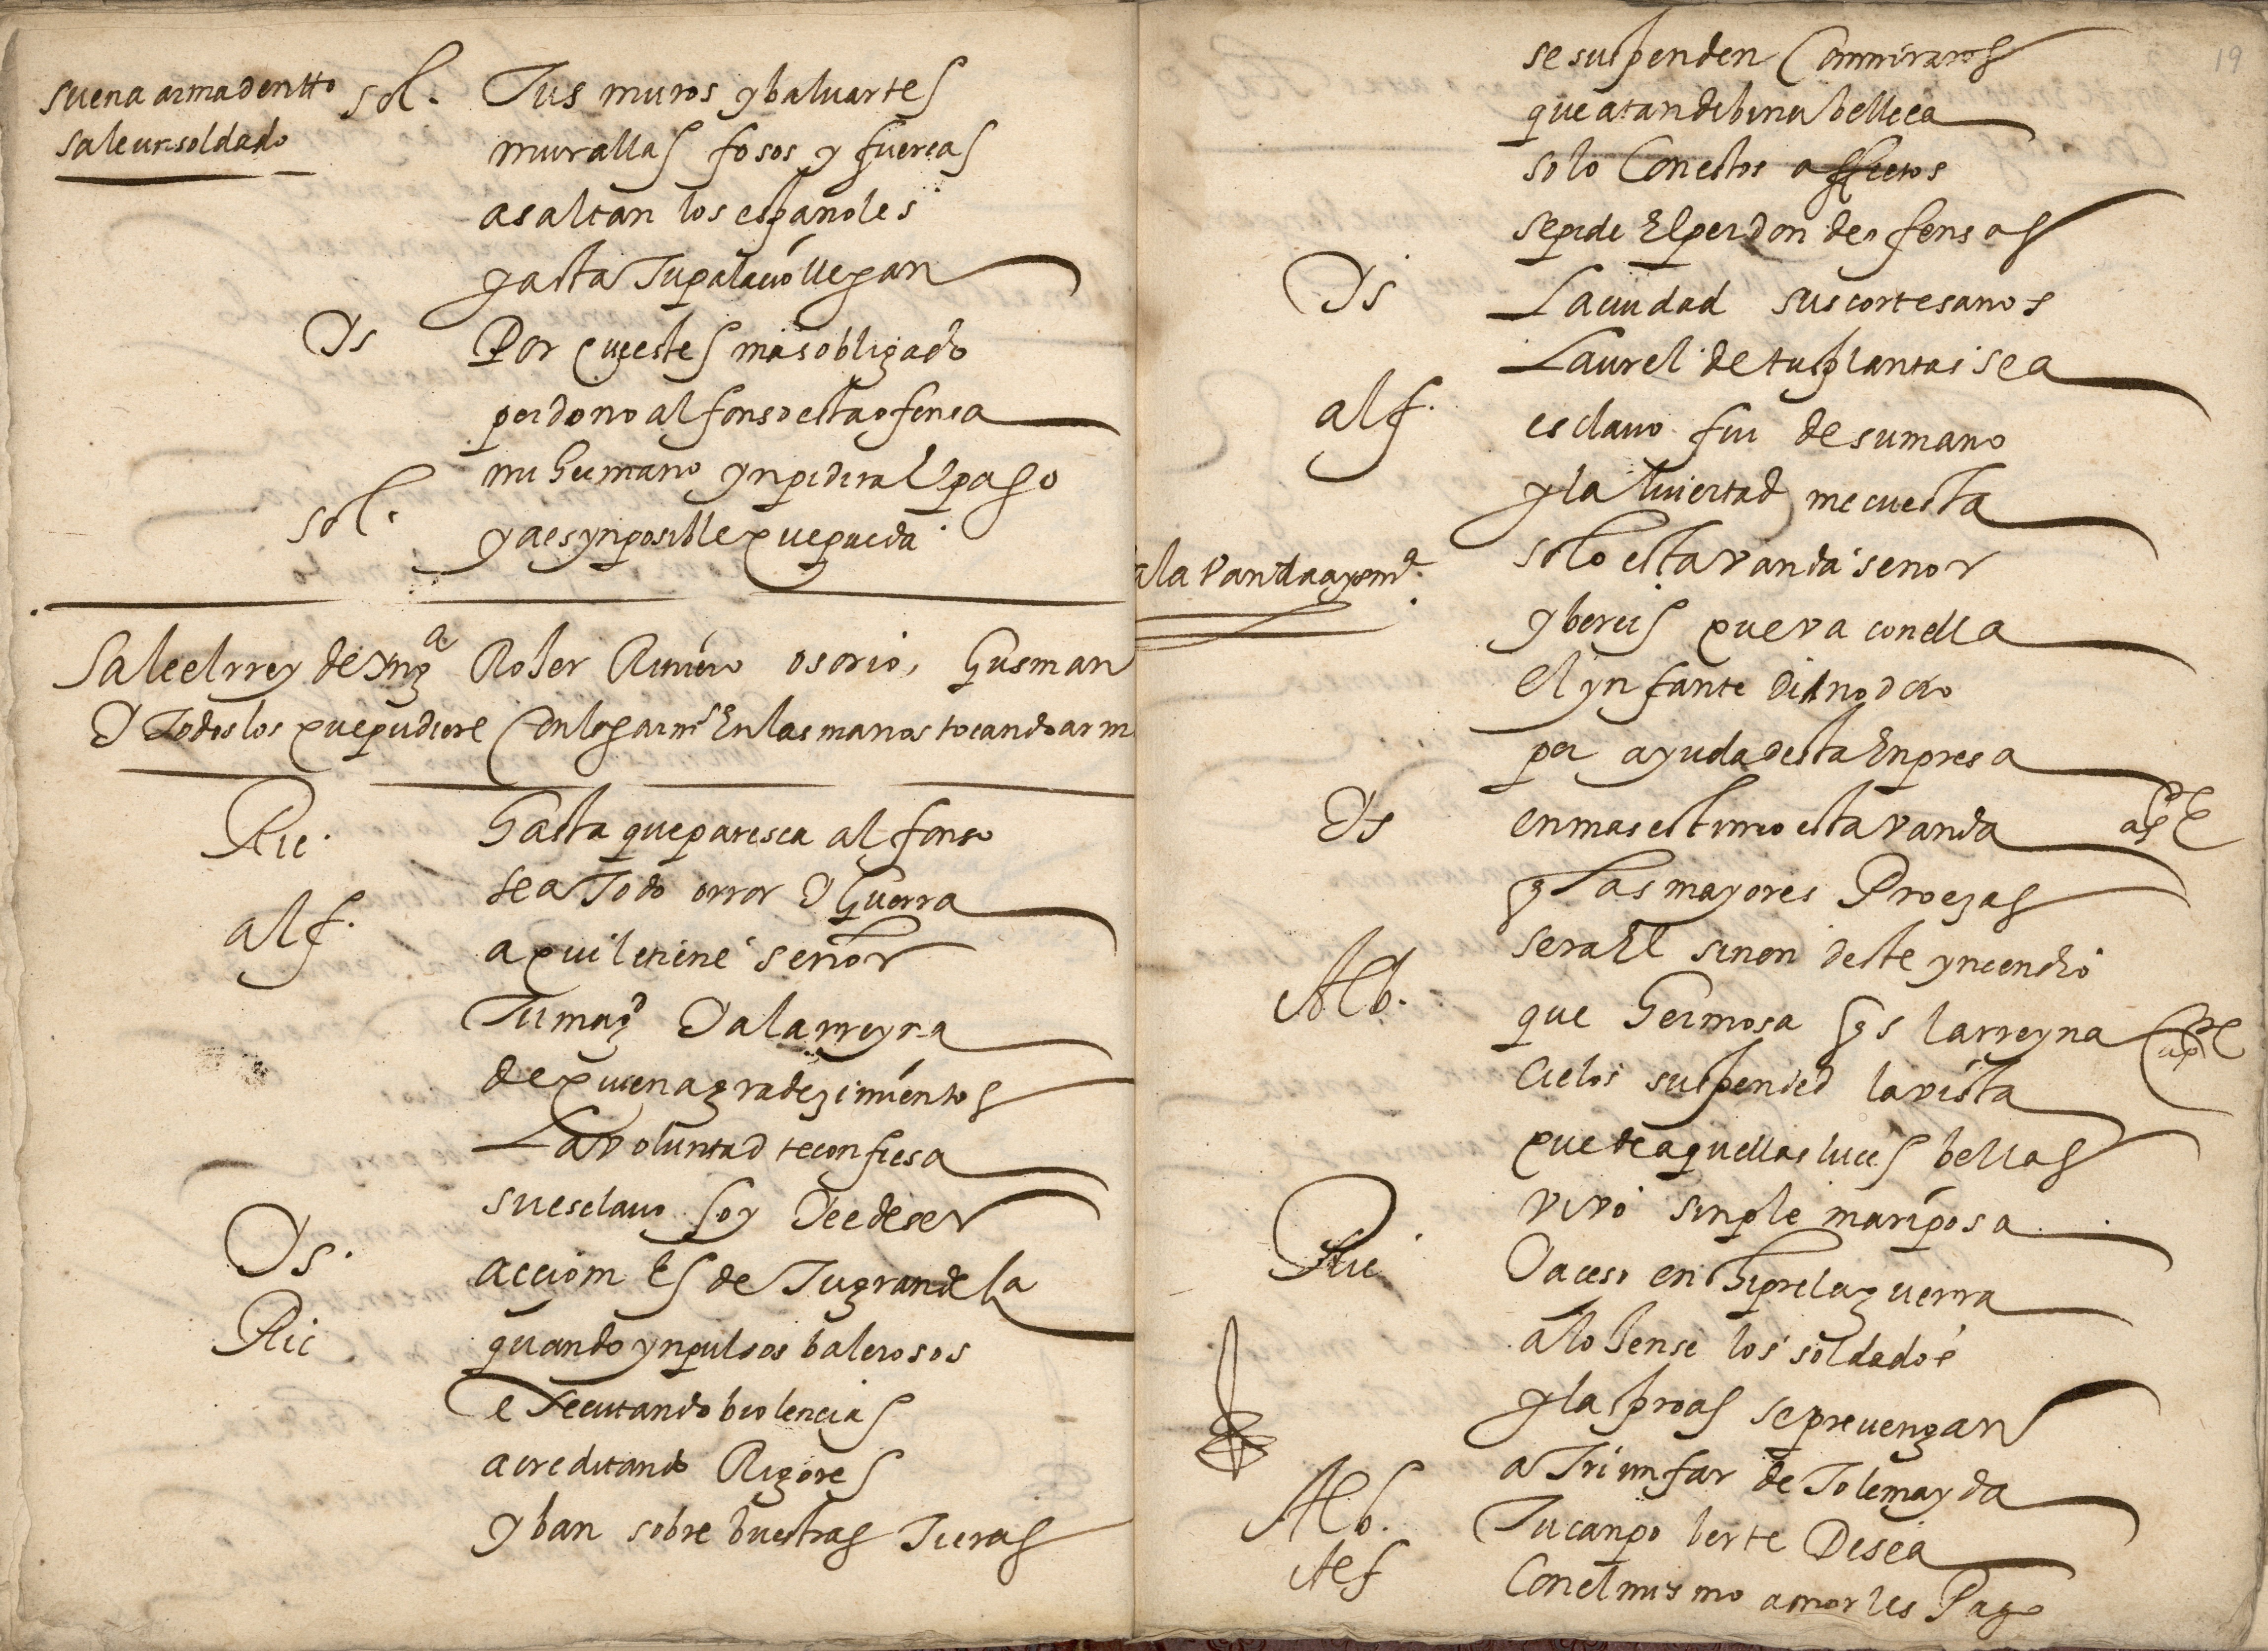 suena arma dentto
sale un soldado
sol. Tus muros y baluartes
murallas fosos y fuerças
asaltan los españoles
y asta Tu palacio llegan
Ys Por que estes mas obligado
perdono alfonso esta ofensa
mi hermano ynpedira El paso
sol. ya es ynposible que pueda
Sale el rrey de yngª Roser Riniero osorio, Gusman
Y Todos los que pudiere Con las armˢ En las manos tocando arm
Ric. hasta que paresca alfonso
sea Todo orror Y Guerra
alf. aqui le tiene señor
Tu magᵈ Y a la rreyna
de quien agradezimientos
La voluntad te confiesa
su esclauo soy Y e de ser
Ys. accion Es de Tu grandesa
Ric quando ynpulsos balerosos
executando biolencias
acreditando Rigores
y ban sobre buestras Tieras
19
se suspenden Con miraros
que a tan dibina belleça
solo Con estos affectos
se pide El perdon de ofensas
Ys La ciudad sus cortesanos
Laurel de tus plantas sea
alf. esclauo fui de su mano
y la liuertad me cuesta
solo esta vanda señor
y bereis que va con ella
El ynfante
por ayuda desta Enpresa
Ys en mas estimo esta vanda ap
q las mayores Proezas
sera El sinon deste yncendio
Alb. que hermosa Es la rreyna ap
Cielos suspended la vista
que de aquellas luces bellas
vivo sinple mariposa
Ric Ya ceso en hipre la guerra
alojense los soldados
y las proas se preuengan
a Triunfar de Tolemayda
Alb. Tu canpo berte Desea
Alf Con el mismo amor les Pago